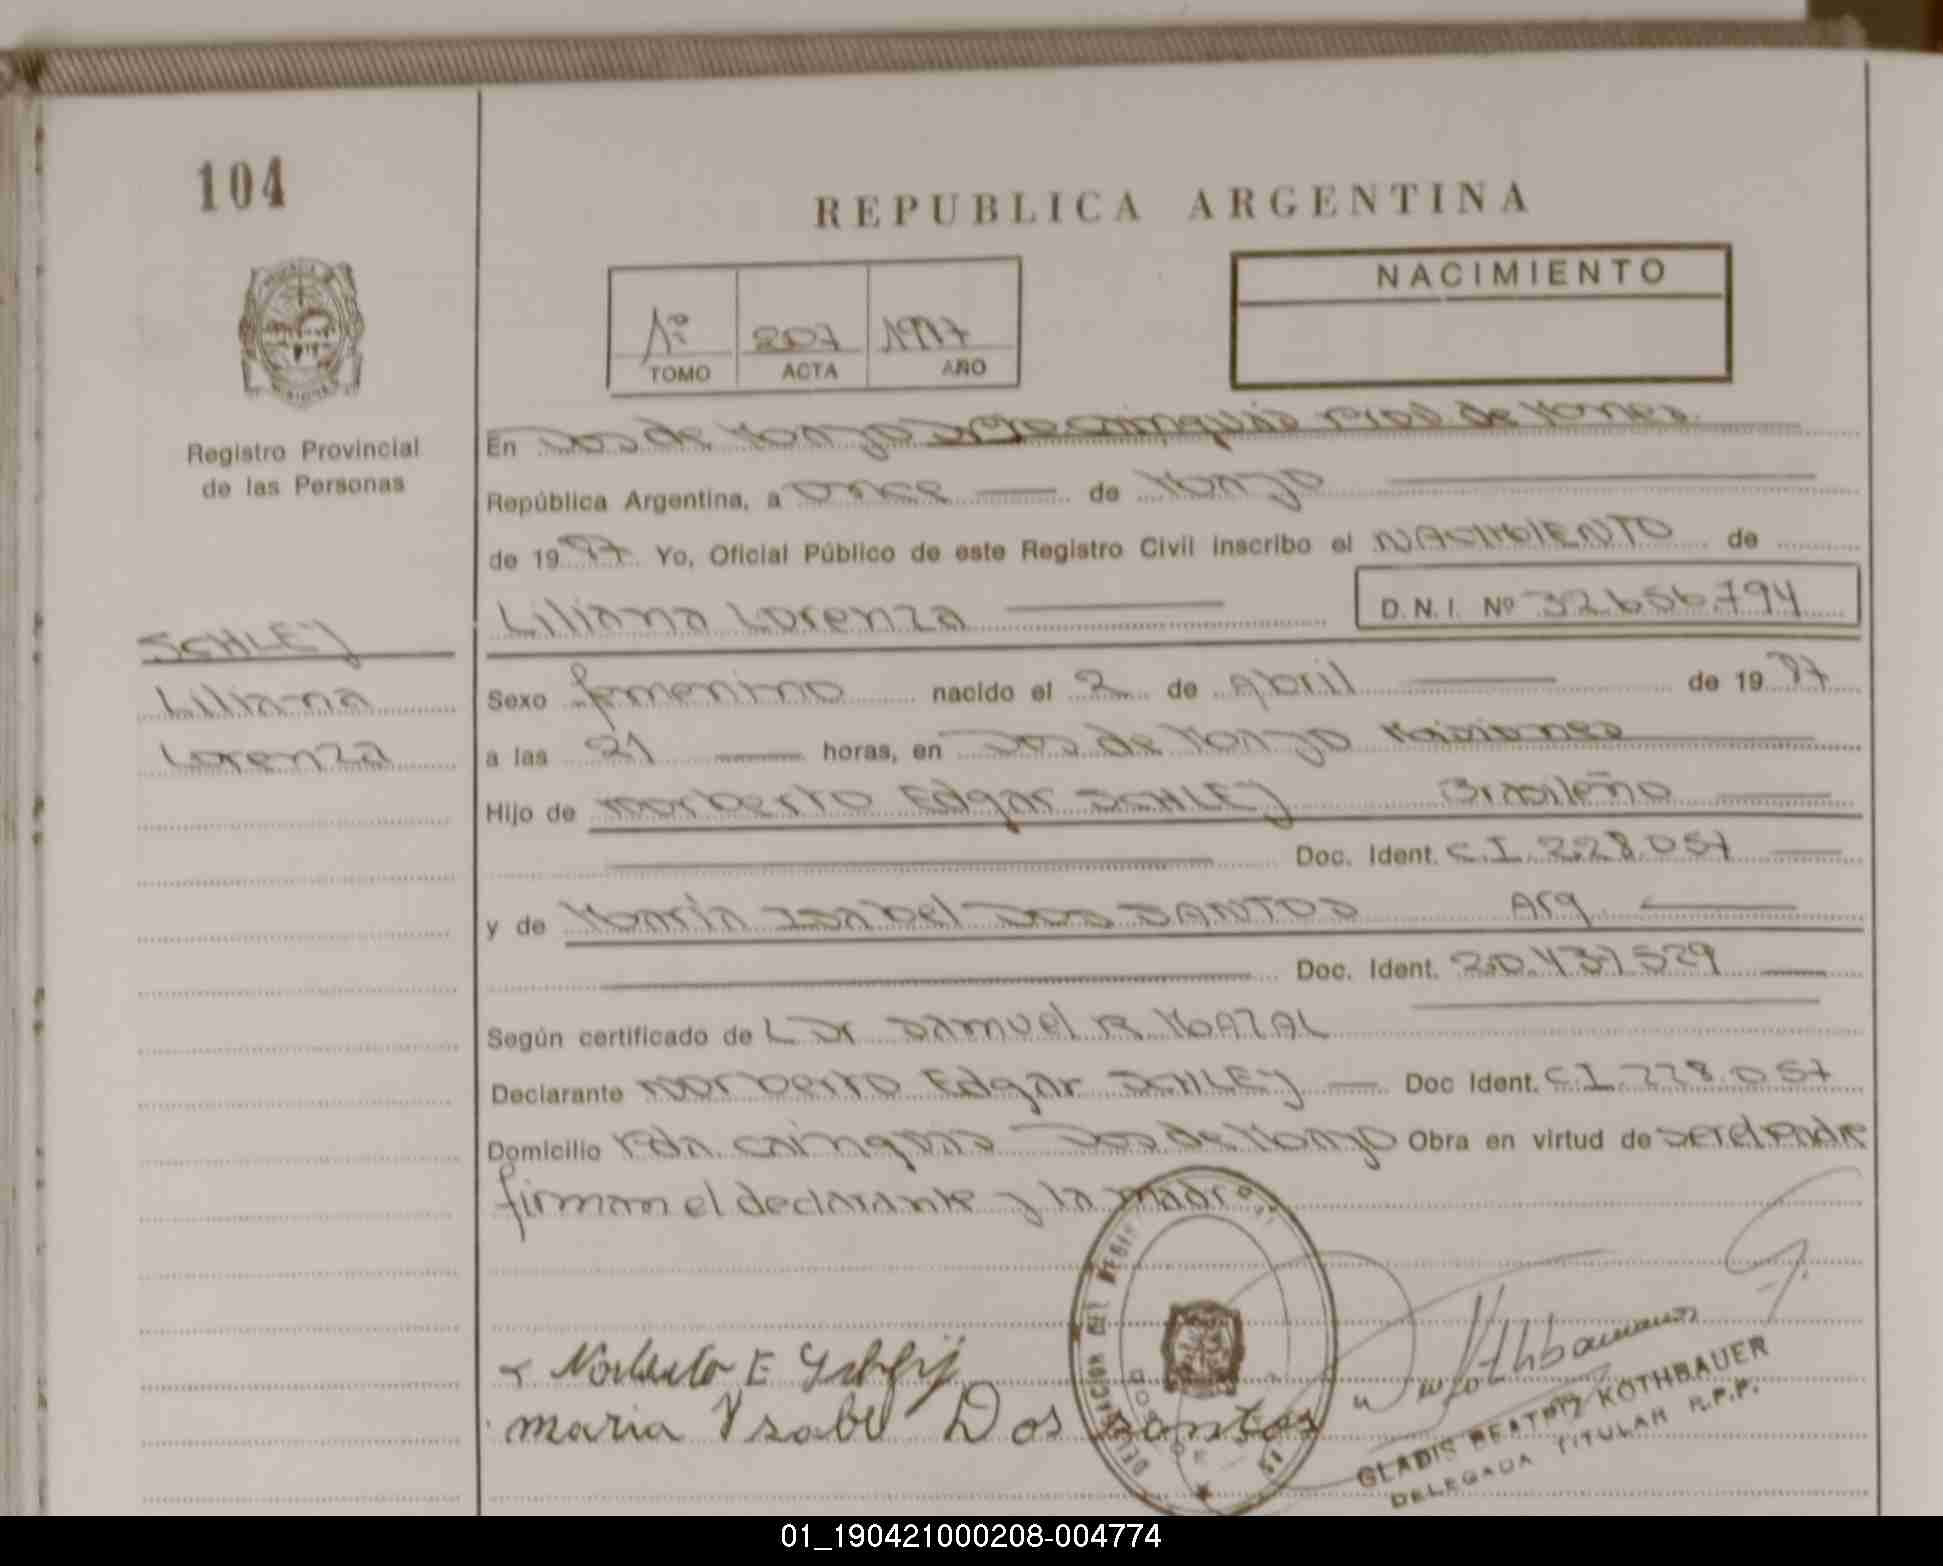 104
REPUBLICA ARGENTINA
NACIMIENTO
1º 207 1997
TOMO ACTA AÑO
Registro Provincial
de las Personas
En Dos de Mayo Dpto Cainguás Prov. de Mones.
República Argentina, a once de Mayo
de 1997 Yo, Oficial Público de este Registro Civil inscribo el NACIMIENTO de
Liliana Lorenza D.N.I. Nº
SCHLEY
Liliana
Lorenza
Sexo femenino nacido el 2 de Abril de 1997
a las 21 horas, en Dos de Mayo Misiones
Hijo de Norberto Edgar SCHLEY Brasileño
Doc. Ident. C.I. 228.057
y de María Isabel Dos SANTOS Arg
Doc. Ident.
Según certificado de L Dr Samuel R
Declarante Norberto Edgar SCHLEY Doc Ident. C.I 228.057
Domicilio Pdn. Cainguás Dos de Mayo Obra en virtud de ser el padre
firman el declarante y la madre
Norberto E
maria Ysabel Dos Santos
GLADIS BEATRIZ KOTHBAUER
DELEGADA TITULAR R.P.P.
01_190421000208-004774